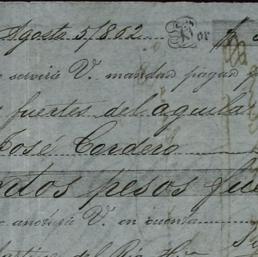 Agosto 5/862 Por $
servirá V. mandar pagar
fuertes del aguila
José Cordero
pesos fue
anotará V. en cuenta
del Rio Hno